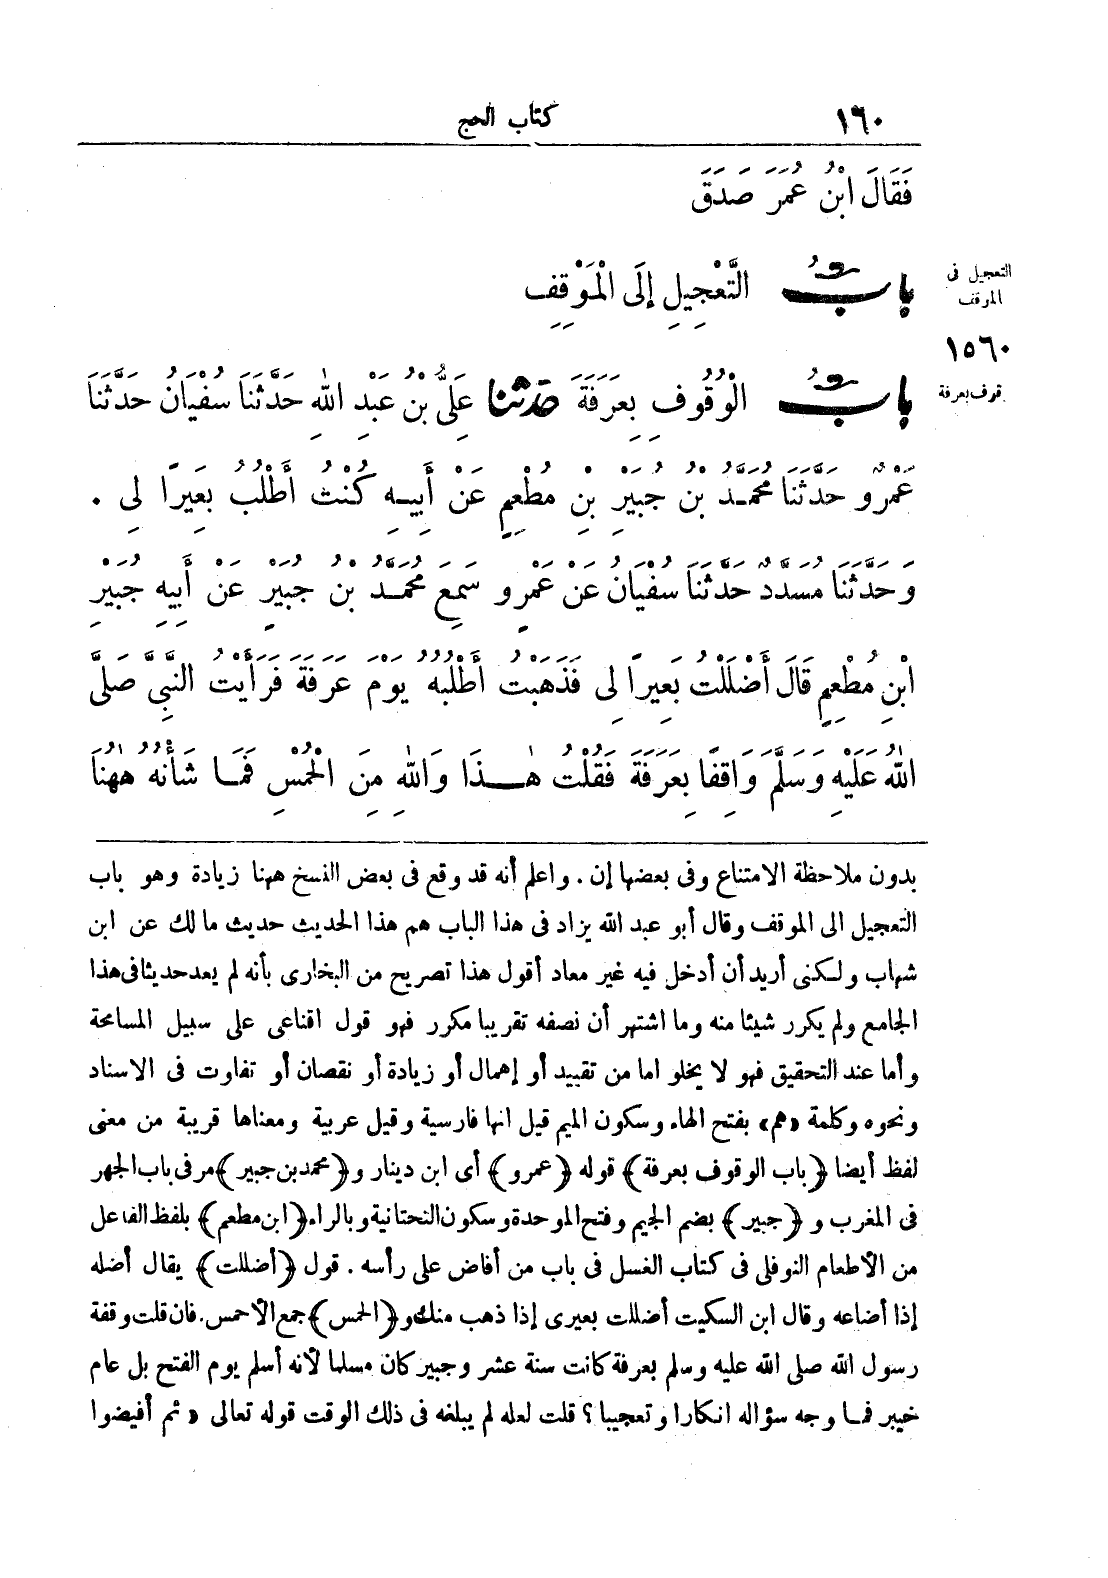 ١٦٠ كتاب الحج
فَقَالَ ابْنُ عُمَرَ صَدَقَ
بَابُ التَّعْجِيلِ إِلَى الْمَوْقِفِ
التعجيل فى
الموقف
١٥٦٠
قوف بعرفة
بَابُ الْوُقُوفِ بِعَرَفَةَ حَدَّثَنَا عَلِىُّ بْنُ عَبْدِ اللّٰهِ حَدَّثَنَا سُفْيَانُ حَدَّثَنَا
عَمْرٌو حَدَّثَنَا مُحَمَّدُ بْنُ جُبَيْرِ بْنِ مُطْعِمٍ عَنْ أَبِيهِ كُنْتُ أَطْلُبُ بَعِيرًا لِى .
وَحَدَّثَنَا مُسَدَّدٌ حَدَّثَنَا سُفْيَانُ عَنْ عَمْرٍو سَمِعَ مُحَمَّدَ بْنَ جُبَيْرٍ عَنْ أَبِيهِ جُبَيْرِ
ابْنِ مُطْعِمٍ قَالَ أَضْلَلْتُ بَعِيرًا لِى فَذَهَبْتُ أَطْلُبُهُ يَوْمَ عَرَفَةَ فَرَأَيْتُ النَّبِىَّ صَلَّى
اللّٰهُ عَلَيْهِ وَسَلَّمَ وَاقِفًا بِعَرَفَةَ فَقُلْتُ هٰذَا وَاللّٰهِ مِنَ الْحُمْسِ فَمَا شَأْنُهُ هٰهُنَا
بدون ملاحظة الامتناع وفى بعضها إن . واعلم أنه قد وقع فى بعض النسخ ههنا زيادة وهو باب
التعجيل الى الموقف وقال أبو عبد الله يزاد فى هذا الباب هم هذا الحديث حديث مالك عن ابن
شهاب ولكنى أريد أن أدخل فيه غير معاد أقول هذا تصريح من البخارى بأنه لم يعد حديثا فى هذا
الجامع ولم يكرر شيئا منه وما اشتهر أن نصفه تقريبا مكرر فهو قول اقناعى على سبيل المسامحة
وأما عند التحقيق فهو لا يخلو اما من تقييد أو إهمال أو زيادة أو نقصان أو تفاوت فى الاسناد
ونحوه وكلمة «هم» بفتح الهاء وسكون الميم قيل انها فارسية وقيل عربية ومعناها قريبة من معنى
لفظ أيضا ﴿باب الوقوف بعرفة﴾ قوله ﴿عمرو﴾ أى ابن دينار و﴿محمد بن جبير﴾ مر فى باب الجهر
فى المغرب و ﴿جبير﴾ بضم الجيم وفتح الموحدة وسكون التحتانية وبالراء ﴿ابن مطعم﴾ بلفظ الفاعل
من الاطعام النوفلى فى كتاب الغسل فى باب من أفاض على رأسه . قول ﴿أضللت﴾ يقال أضله
إذا أضاعه وقال ابن السكيت أضللت بعيرى إذا ذهب منك و﴿الحمس﴾ جمع الأحمس. فان قلت وقفة
رسول الله صلى الله عليه وسلم بعرفة كانت سنة عشر وجبير كان مسلما لأنه أسلم يوم الفتح بل عام
خيبر فما وجه سؤاله انكارا وتعجيبا ؟ قلت لعله لم يبلغه فى ذلك الوقت قوله تعالى « ثم أفيضوا